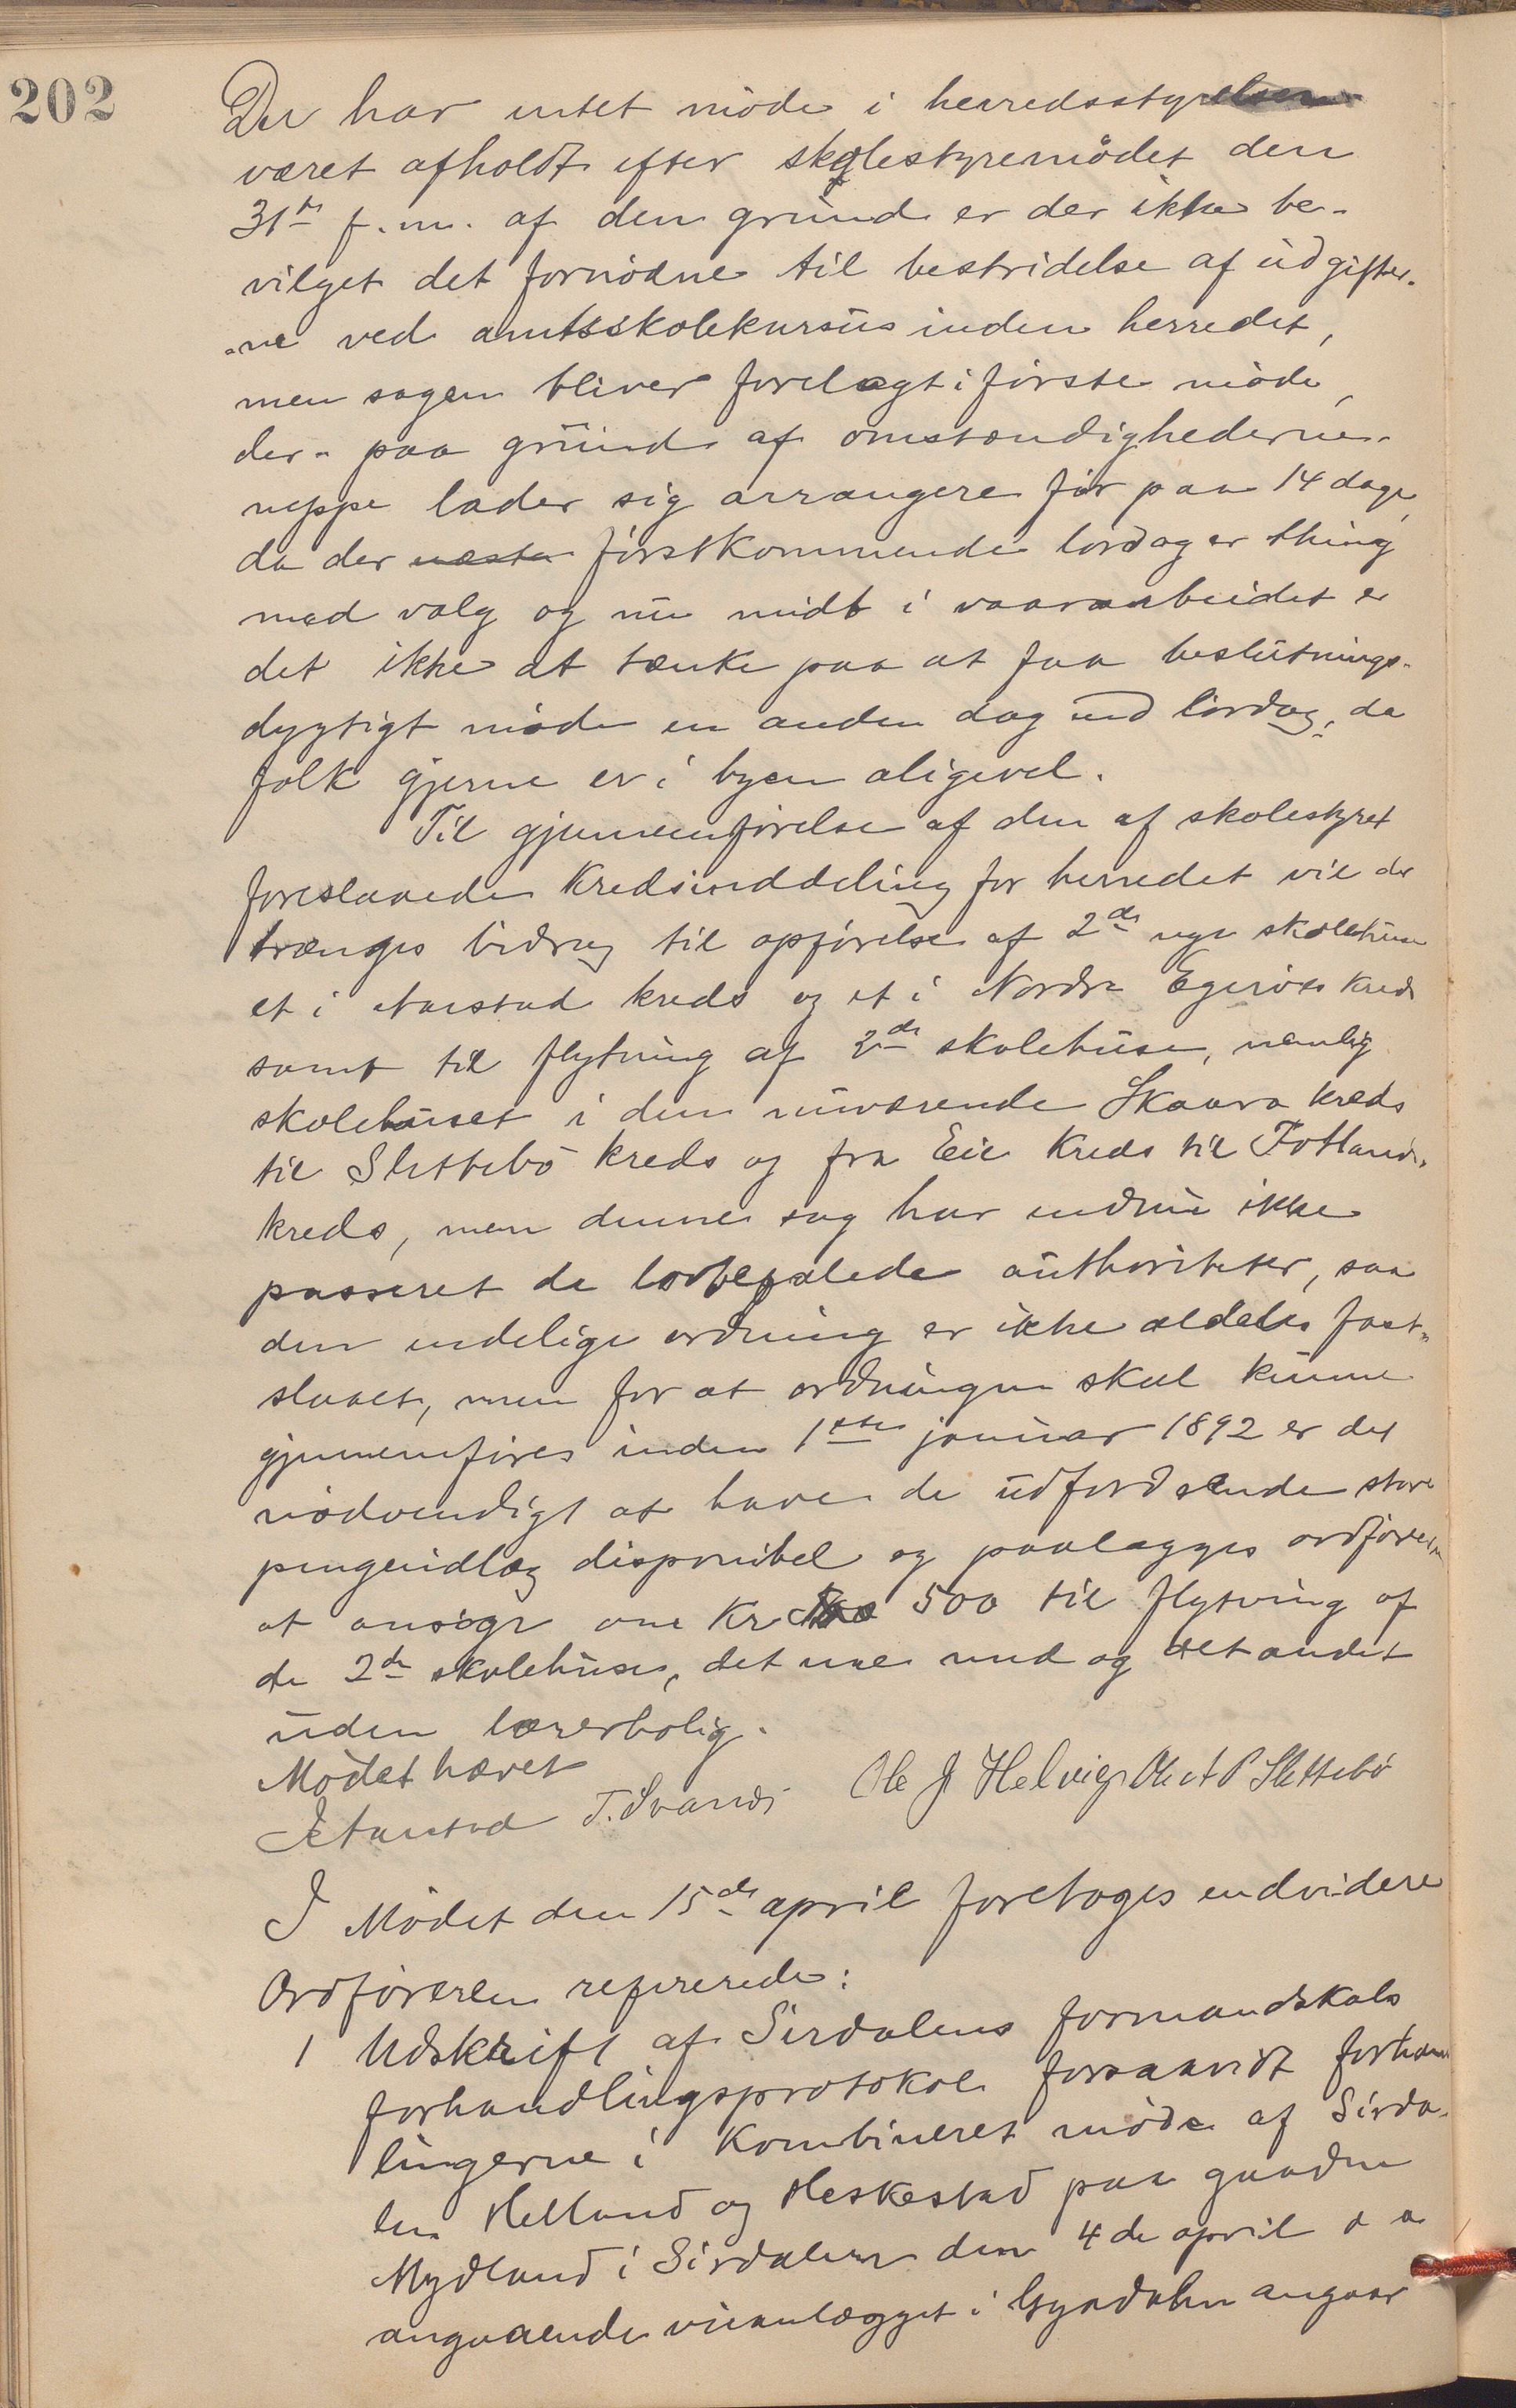 202
Der har intet møde i herredsstyrelsen
været afholdt efter skolestyremødet den
31te f.m. af den grund er der ikke be-
vilget det fornødne til bestridelse af udgifter-
ne ved amtsskolekursus inden herredet,
men sagen bliver forelagt i første møde,
der - paa grund af omstændighederne -
neppe lader sig arrangere før paa 14 dage,
da der næste førstkommende lørdag er thing
med valg og nu midt i vaararbeidet er
det ikke at tænke paa at faa beslutnings-
dygtigt møde en anden dag end lørdag, da
folk gjerne er i byen aligevel.
Til gjennemførelse af den af skolestyret
foreslaaede kredsinddeling for herredet vil der
trænges bidrag til opførelse af 2de nye skolehuse
et i Aarstad kreds og et i Nordre Egerøens kreds
samt til flytning af 2de skolehuse, nemlig
skolehuset i den nuværende Skaara kreds
til Slettebø kreds og fra Eie kreds til Fotlands
kreds, men denne sag har endnu ikke
passeret de lovbefalede authoriteter, saa
den endelige ordning er ikke aldeles fast-
slaaet, men for at ordningen skal kunne
gjennemføres inden 1ste januar 1892 er det
nødvendigt at have de udfordrende store
pengeudlæg disponibel og paalægges ordføreren
at ansøge om Kr 500 til flytning af
de 2de skolehuse, det ene med og det andet
uden lærerbolig.
Mødet hævet
J Aarstad T. Svanes Ole J. Helvig Ole A P Slettebø
I Mødet den 15de april foretoges endvidere
Ordføreren refererede:
1 Udskrift af Sirdalens formandskabs
forhandlingsprotokol forsaavidt forhand
lingerne i kombineret møde af Sirda-
len Helland og Heskestad paa gaarden
Mydland i Sirdalen den 4de april d a
angaaende veianlægget i Gyadalen angaar